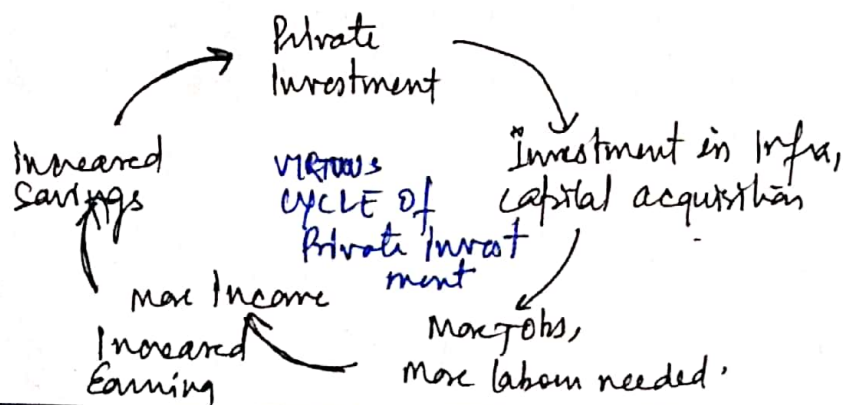 Private
Investment
Investment in Infra,
capital acquisition
More Jobs,
More labour needed.
More Income
Increased
Earning
Increased
Savings
VIRTUOUS
CYCLE OF
Private Invest
ment